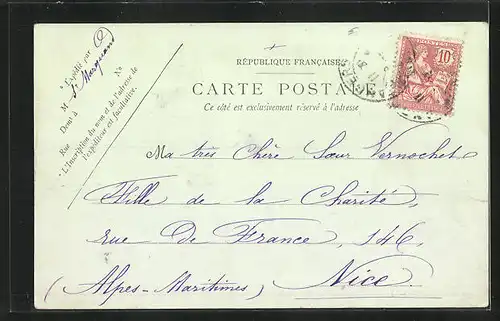 RÉPUBLIQUE FRANÇAISE
CARTE POSTALE
Ce côté est exclusivement réservé à l'adresse
10
Expédié par
M
Demt à
Rue Nº
L'Inscription du nom et de l'adresse de
l'expéditeur est facultative.
Ma très Chère Sœur Vernochet
Fille de la Charité,
rue De France, 146,
(Alpes-Maritimes) Nice.